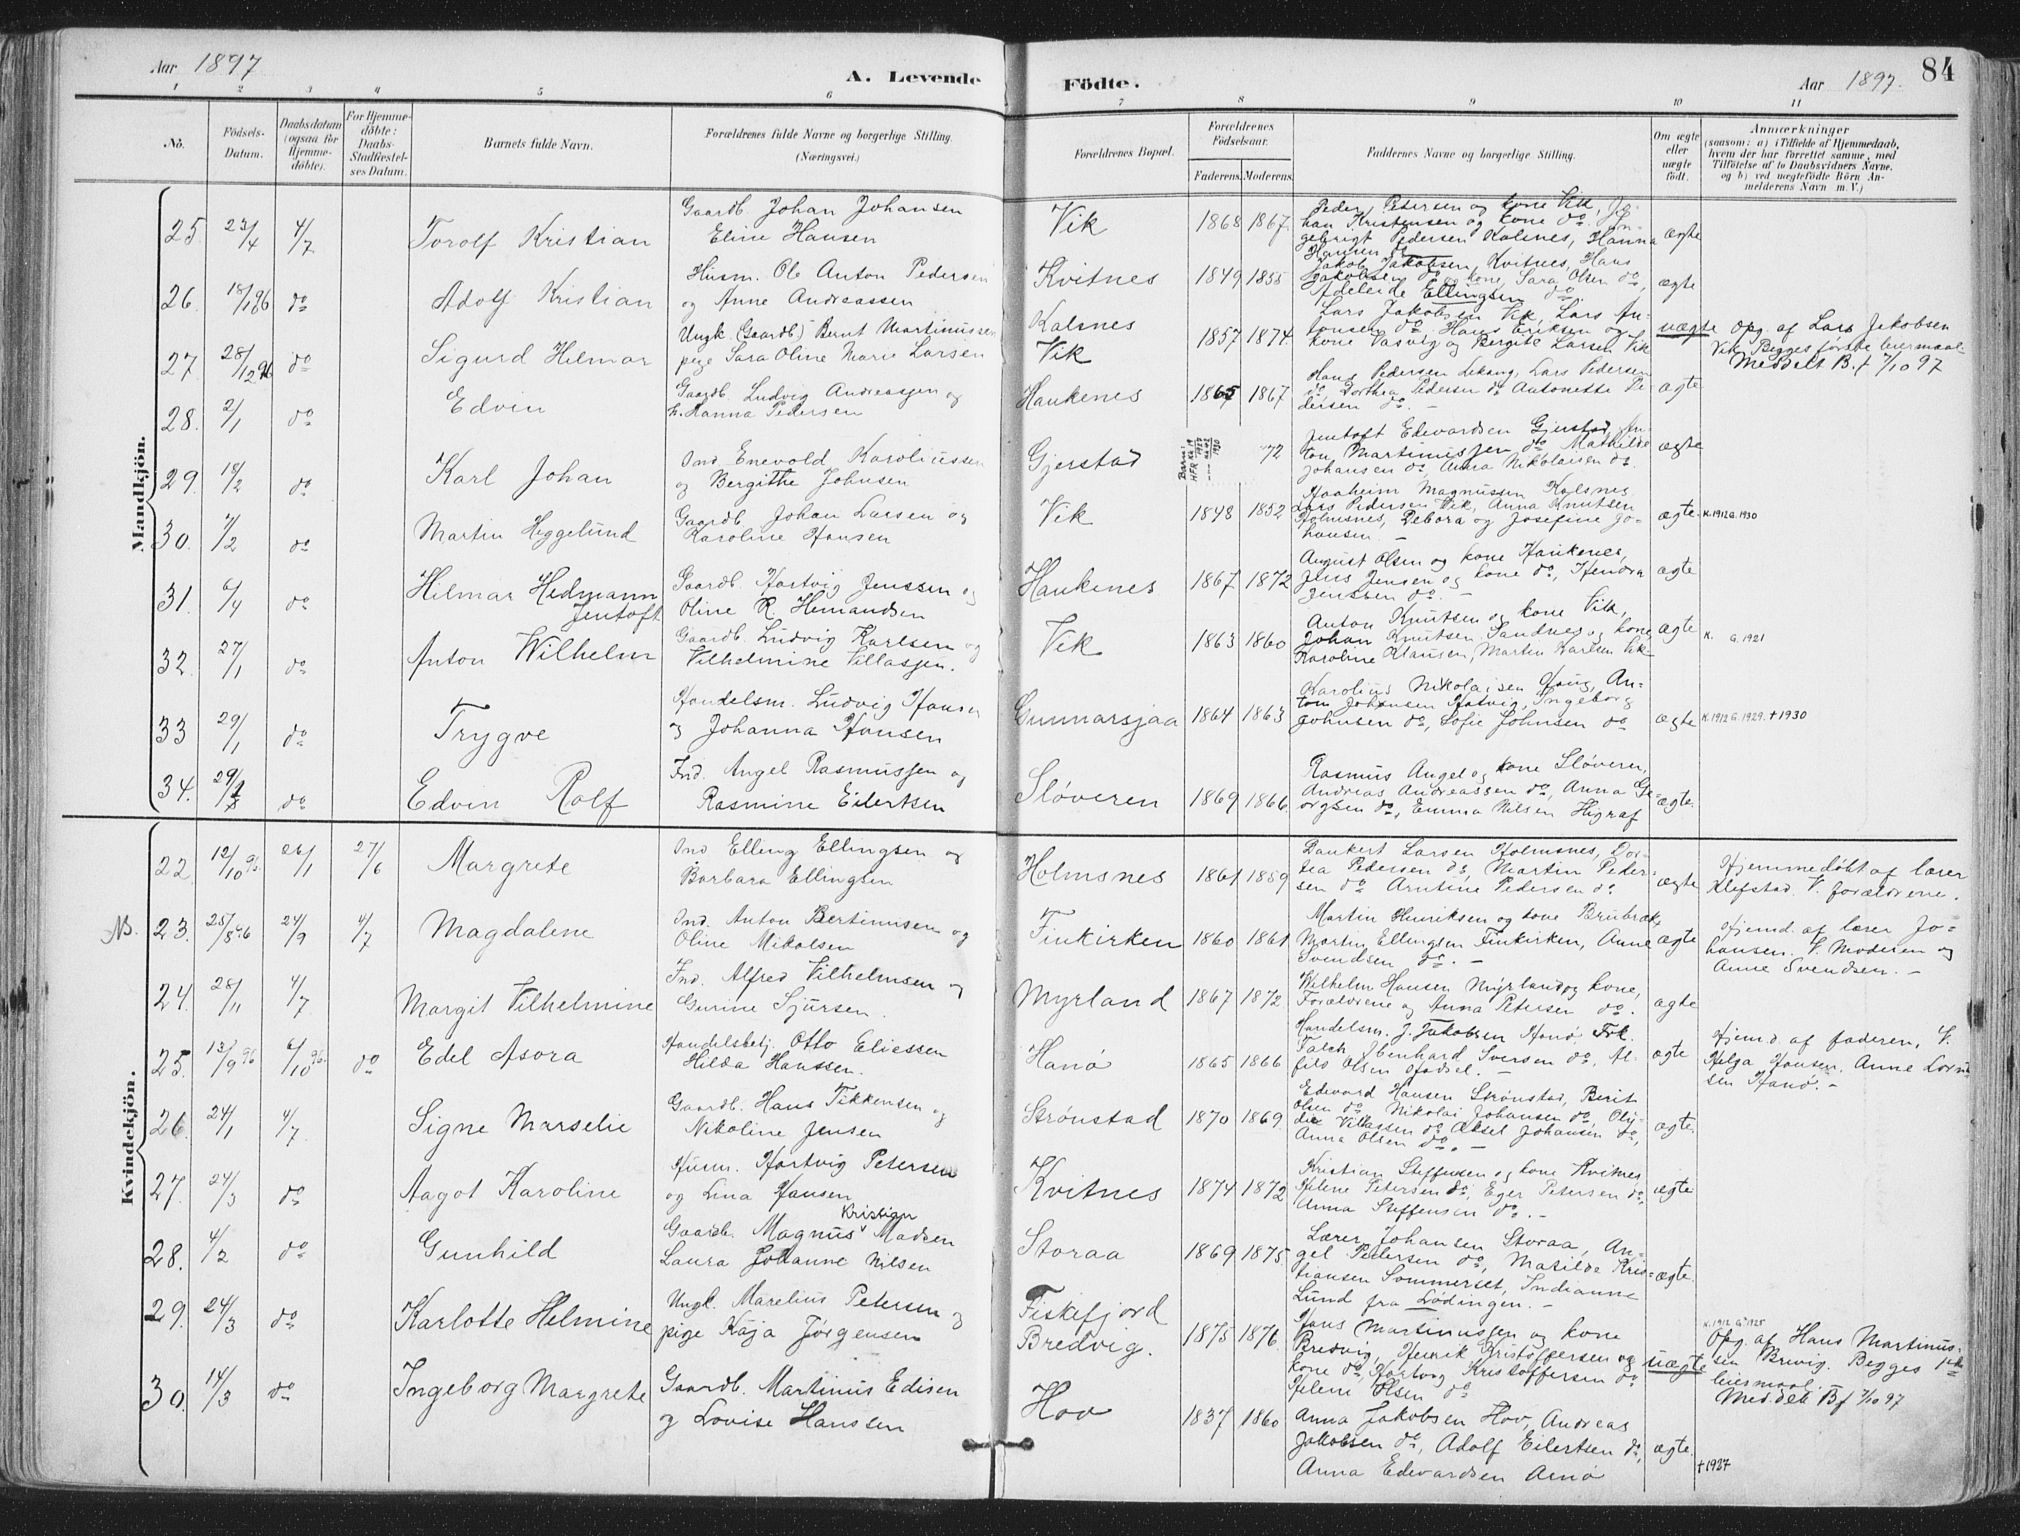 Aar 1897
A. Levende Födte.
Aar 1897.
84
1 2 3 4 5 6 7 8 9 10 11
No.
Födsels-
Datum.
Daabsdatum
(ogsaa for
Hjemme-
döbte).
For Hjemme-
döbte:
Daabs-
Stadfæstel-
ses Datum.
Barnets fulde Navn.
Forældrenes fulde Navne og borgerlige Stilling.
(Næringsvei.)
Forældrenes Bopæl.
Forældrenes
Födselsaar.
Faderens. Moderens.
Faddernes Navne og borgerlige Stilling.
Om ægte
eller
uægte
födt.
Anmærkninger
(saasom: a) i Tilfælde af Hjemmedaab,
hvem der har forrettet samme, med
Tilföielse af to Daabsvidners Navne.
og b) ved uægtefödte Börn An-
melderens Navn m. V.)
Mandkjön.
25. 23/4 4/7 Torolf Kristian
Gaardb. Johan Johansen
Eline Hansen
Vik 1868 1867.
Peder Petersen og kone Vik, Jo-
han Kristensen og kone do. In-
gebrigt Pedersen Kalsnes, Hanna
Hansen do
ægte
26. 18/1 96 do Adolf Kristian
Husm. Ole Anton Pedersen
og Anne Andreassen
Kvitnes 1849 1855
Jakob Jakobsen, Kvitnes, Hans
Jakobsen do og kone, Sara Olsen do,
Adeleide Ellingsen do
ægte
27. 28/12 96 do Sigurd Hilmar
Ungk. (Gaardb.) Bernt Martinussen
pige Sara Oline Marie Larsen
Kalsnes
Vik
1857 1874.
Lars Jakobsen Vik, Lars An-
tonsen do. Hans Eriksen og
kone Vasvig og Bergite Larsen Vik
uægte
Opg. af Lars Jakobsen
Vik. Begges første leiermaal.
Meddelt B.f 7/10 97
28. 2/1 do Edvin
Gaardb. Ludvig Andreassen og
h. Hanna Pedersen
Haukenes 1865 1867
Hans Pedersen Lekang, Lars Pedersen
do, Dorthea Pedersen do Antonette Pe-
dersen do. –
ægte
29. 18/2 do Karl Johan
Ind. Enevold Karoliussen
og Bergithe Johnsen
Gjerstad 72
Jentoft Edevardsen Gjerstad, An-
ton Martinussen do Mathilde
Johansen do Anna Nikolaisen do.
ægte
30. 7/2 do Martin Heggelund
Gaardb. Johan Larsen og
Karoline Hansen
Vik 1848 1852
Haaheim Magnussen Kalsnes
Lars Pedersen Vik, Anna Knutsen
Holmsnes, Debora og Josefine Jo-
hansen. –
ægte. K. 1912 G. 1930
31. 6/4 do Hilmar Hedmann
Jentoft
Gaardb. Hartvig Jenssen og
Oline R. Hemandsen
Haukenes 1867 1872
August Olsen og kone Haukenes,
Jens Jensen og kone do, Hendra
Jenssen do. –
ægte
32. 27/1 do Anton Wilhelm
Gaardb. Ludvig Karlsen og
Vilhelmine Villassen.
Vik 1863 1860
Anton Knutsen og kone Vik,
Johan Knutsen Sandnes og kone
Karoline Klausen, Martin Karlsen Vik
ægte K. G. 1921
33 29/1 do Trygve
Handelsm. Ludvig Hansen
og Johanna Hansen
Gunnarsjaa 1864 1863
Karolius Nikolaisen Haug, An-
ton Johansen Hatvig, Ingeborg
Johnsen do, Sofie Johnsen do
ægte K. 1912 G. 1929. † 1930
34. 29/1 do Edvin Rolf
Ind. Angel Rasmussen og
Rasmine Eilertsen
Sløveren 1869 1866.
Rasmus Angel og kone Sløveren,
Andreas Andreassen do, Anna Ge-
orgsen do, Emma Nilsen Higraf
ægte.
Kvindekjön.
22. 12/10 95 26/1 27/6 Margrete
Ind Elling Ellingsen og
Barbara Ellingsen
Holmsnes 1861 1859
Dankert Larsen Holmsnes, Dor-
tea Pedersen do, Martin Peder-
sen do Arntine Pedersen do
ægte
Hjemmedøbt af lærer
Klefstad. V. forældrene.
NB. 23. 25/8 96 24/9 4/7 Magdalene
Ind. Anton Bertinusen og
Oline Mikalsen
Finkirken 1860 1861
Martin Henriksen og kone Brubræk,
Martin Ellingsen Finkirken, Anne
Svendsen do. –
ægte
Hjemd. af lærer Jo-
hansen. V. Moderen og
Anne Svendsen. –
24. 28/11 4/7 Margit Vilhelmine
Ind. Alfred Vilhelmsen og
Gurine Sjursen.
Myrland 1867 1872
Wilhelm Hansen Myrland og kone,
Forældrene og Anna Petersen do.
ægte
25. 13/9 96 6/10 96 do Edel Asora
Handelsbetj. Otto Eliessen
Hilda Hanssen.
Hanø 1865 1866
Handelsm. J. Jakobsen Hanø, Frk.
Falch, Ibenhard Iversen do, Al-
fild Olsen Hadsel. –
ægte
Hjemd. af faderen, V.
Helga Hansen, Anne Lornt-
sen Hanø. –
26. 24/1 4/7 Signe Marselie
Gaardb. Hans Tikkensen og
Nikoline Jensen
Strønstad 1870 1869
Edevard Hansen Strønstad, Berit
Olsen do Nikolai Johansen do, Oly-
die Villassen do Aksel Johansen do,
Anna Olsen do. –
ægte.
27. 24/3 do Aagot Karoline
Husm. Hartvig Petersen
og Lina Hansen
Kvitnes 1874 1872
Kristian Steffensen og kone Kvitnes
Helene Petersen do, Eger Petersen do,
Anna Steffensen do. –
ægte
28. 4/2 do Gunhild
Kristian
Gaardb. Magnus Madsen
Laura Johanne Nilsen
Storaa 1869 1875
Lærer Johansen Storaa, An-
gel Pedersen do, Matilde Kris-
tiansen Sommerset, Indianne
Lund fra Lødingen. –
ægte.
29. 24/3 do Karlotte Helmine
Ungk. Marelius Petersen og
pige Kaja Jørgensen
Fiskefjord
Bredvig. 1875 1876.
Hans Martinussen og kone
Bredvig, Henrik Kristoffersen og
kone do, Hartvig Kristoffersen do
Helene Olsen do
uægte
K. 1912 G. 1925
Opg. af Hans Martinus-
sen Brevig. Begges 1ste
leiermaal.
Meddelt Bf 7/10 97
30. 14/3 do Ingeborg Margrete
Gaardb. Martinus Edisen
og Lovise Hanssen
Hov 1837 1860
Anna Jakobsen Hov, Andreas
Jakobsen do, Adolf Eilertsen do,
Anna Edevardsen Arnø
ægte.
† 1927